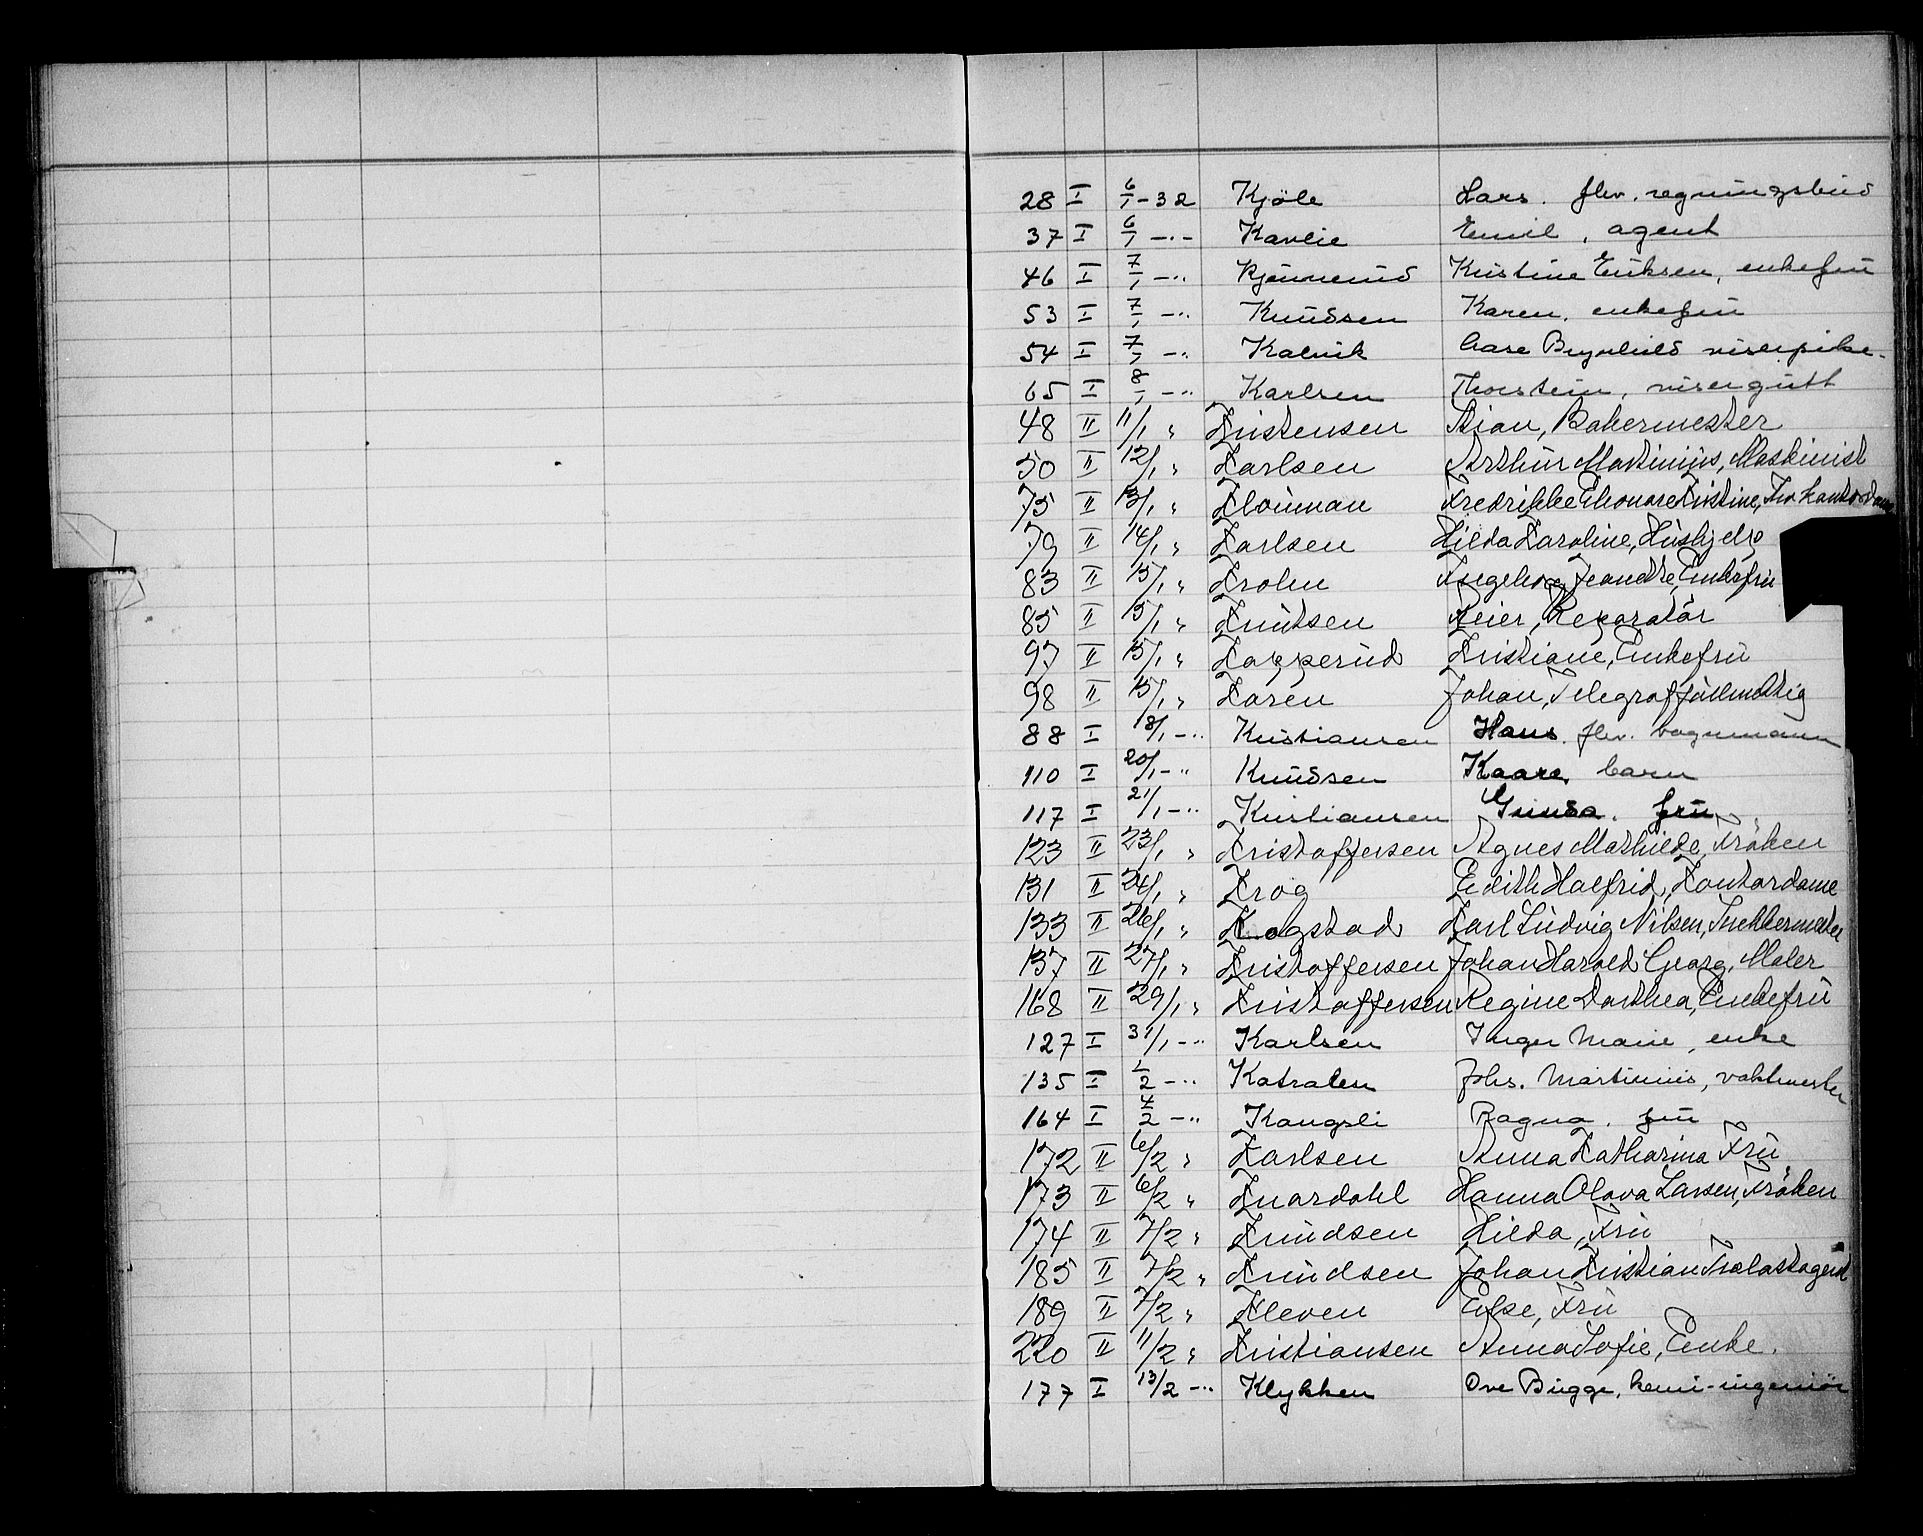 28 I 6/1-32 Kjöle Lars. fhv. regningsbud
37 I 6/1 -"- Karlie Emil, agent
46 I 7/1 -" Kjennerud Kristine Eriksen, enkefru
53 I 7/1 -" Knudsen Karen. enkefru
54 I 7/1 -" Kalvik Aase Brynhild viserpike.
65 I 8/1 -" Karlsen Thorstein, visergutt
48 II 11/1 " Kristensen Stian, Bakermester
50 II 12/1 " Karlsen Arthur Martinius, Maskinist
75 II 13/1 " Klouman Fredrikke Elionare Kristine, Frk Kontordame
79 II 14/1 " Karlsen Hilda Karoline, Hushjelp
83 II 15/1 " Krohn Ingeborg Jeanette, Enkefru
85 II 15/1 " Knutsen Reier, Reparatör
97 II 15/1 " Kopperud Kristiane, Enkefru
98 II 15/1 " Korén Johan, Telegraffullmektig
88 I 18/1 -" Kristiansen Hans. fhv. vognmann
110 I 20/1 -" Knudsen Kaare, barn
117 I 21/1 -" Kristiansen Gunda. fru
123 II 23/1 " Kristoffersen Agnes Mathilde, Fröken
131 II 24/1 " Krog Edith Halfrid, Kontordame
133 II 26/1 " Klogstad Karl Ludvig Nilsen, Snekkermester
137 II 27/1 " Kristoffersen Johan Harald Georg, Maler
168 II 29/1 " Kristoffersen Regine Dorthea, Enkefru
127 I 31/1 -" Karlsen Inger Marie, enke
135 I 1/2 -" Katralen Johs. Martinius, vaktmester
164 I 4/2 -" Kangsli Ragna. fru
172 II 6/2 " Karlsen Anna Katharina Fru
173 II 6/2 " Knardahl Hanna Olava Larsen, Fröken
174 II 7/2 " Knudsen Hilda, Fru
185 II 7/2 " Knudsen Johan Kristian Trelastagent
189 II 7/2 " Kleven Else, Fru
220 II 11/2 " Kristiansen Anna Sofie, Enke.
177 I 13/2 -" Klykken Ove Bugge, kemi-ingeniör